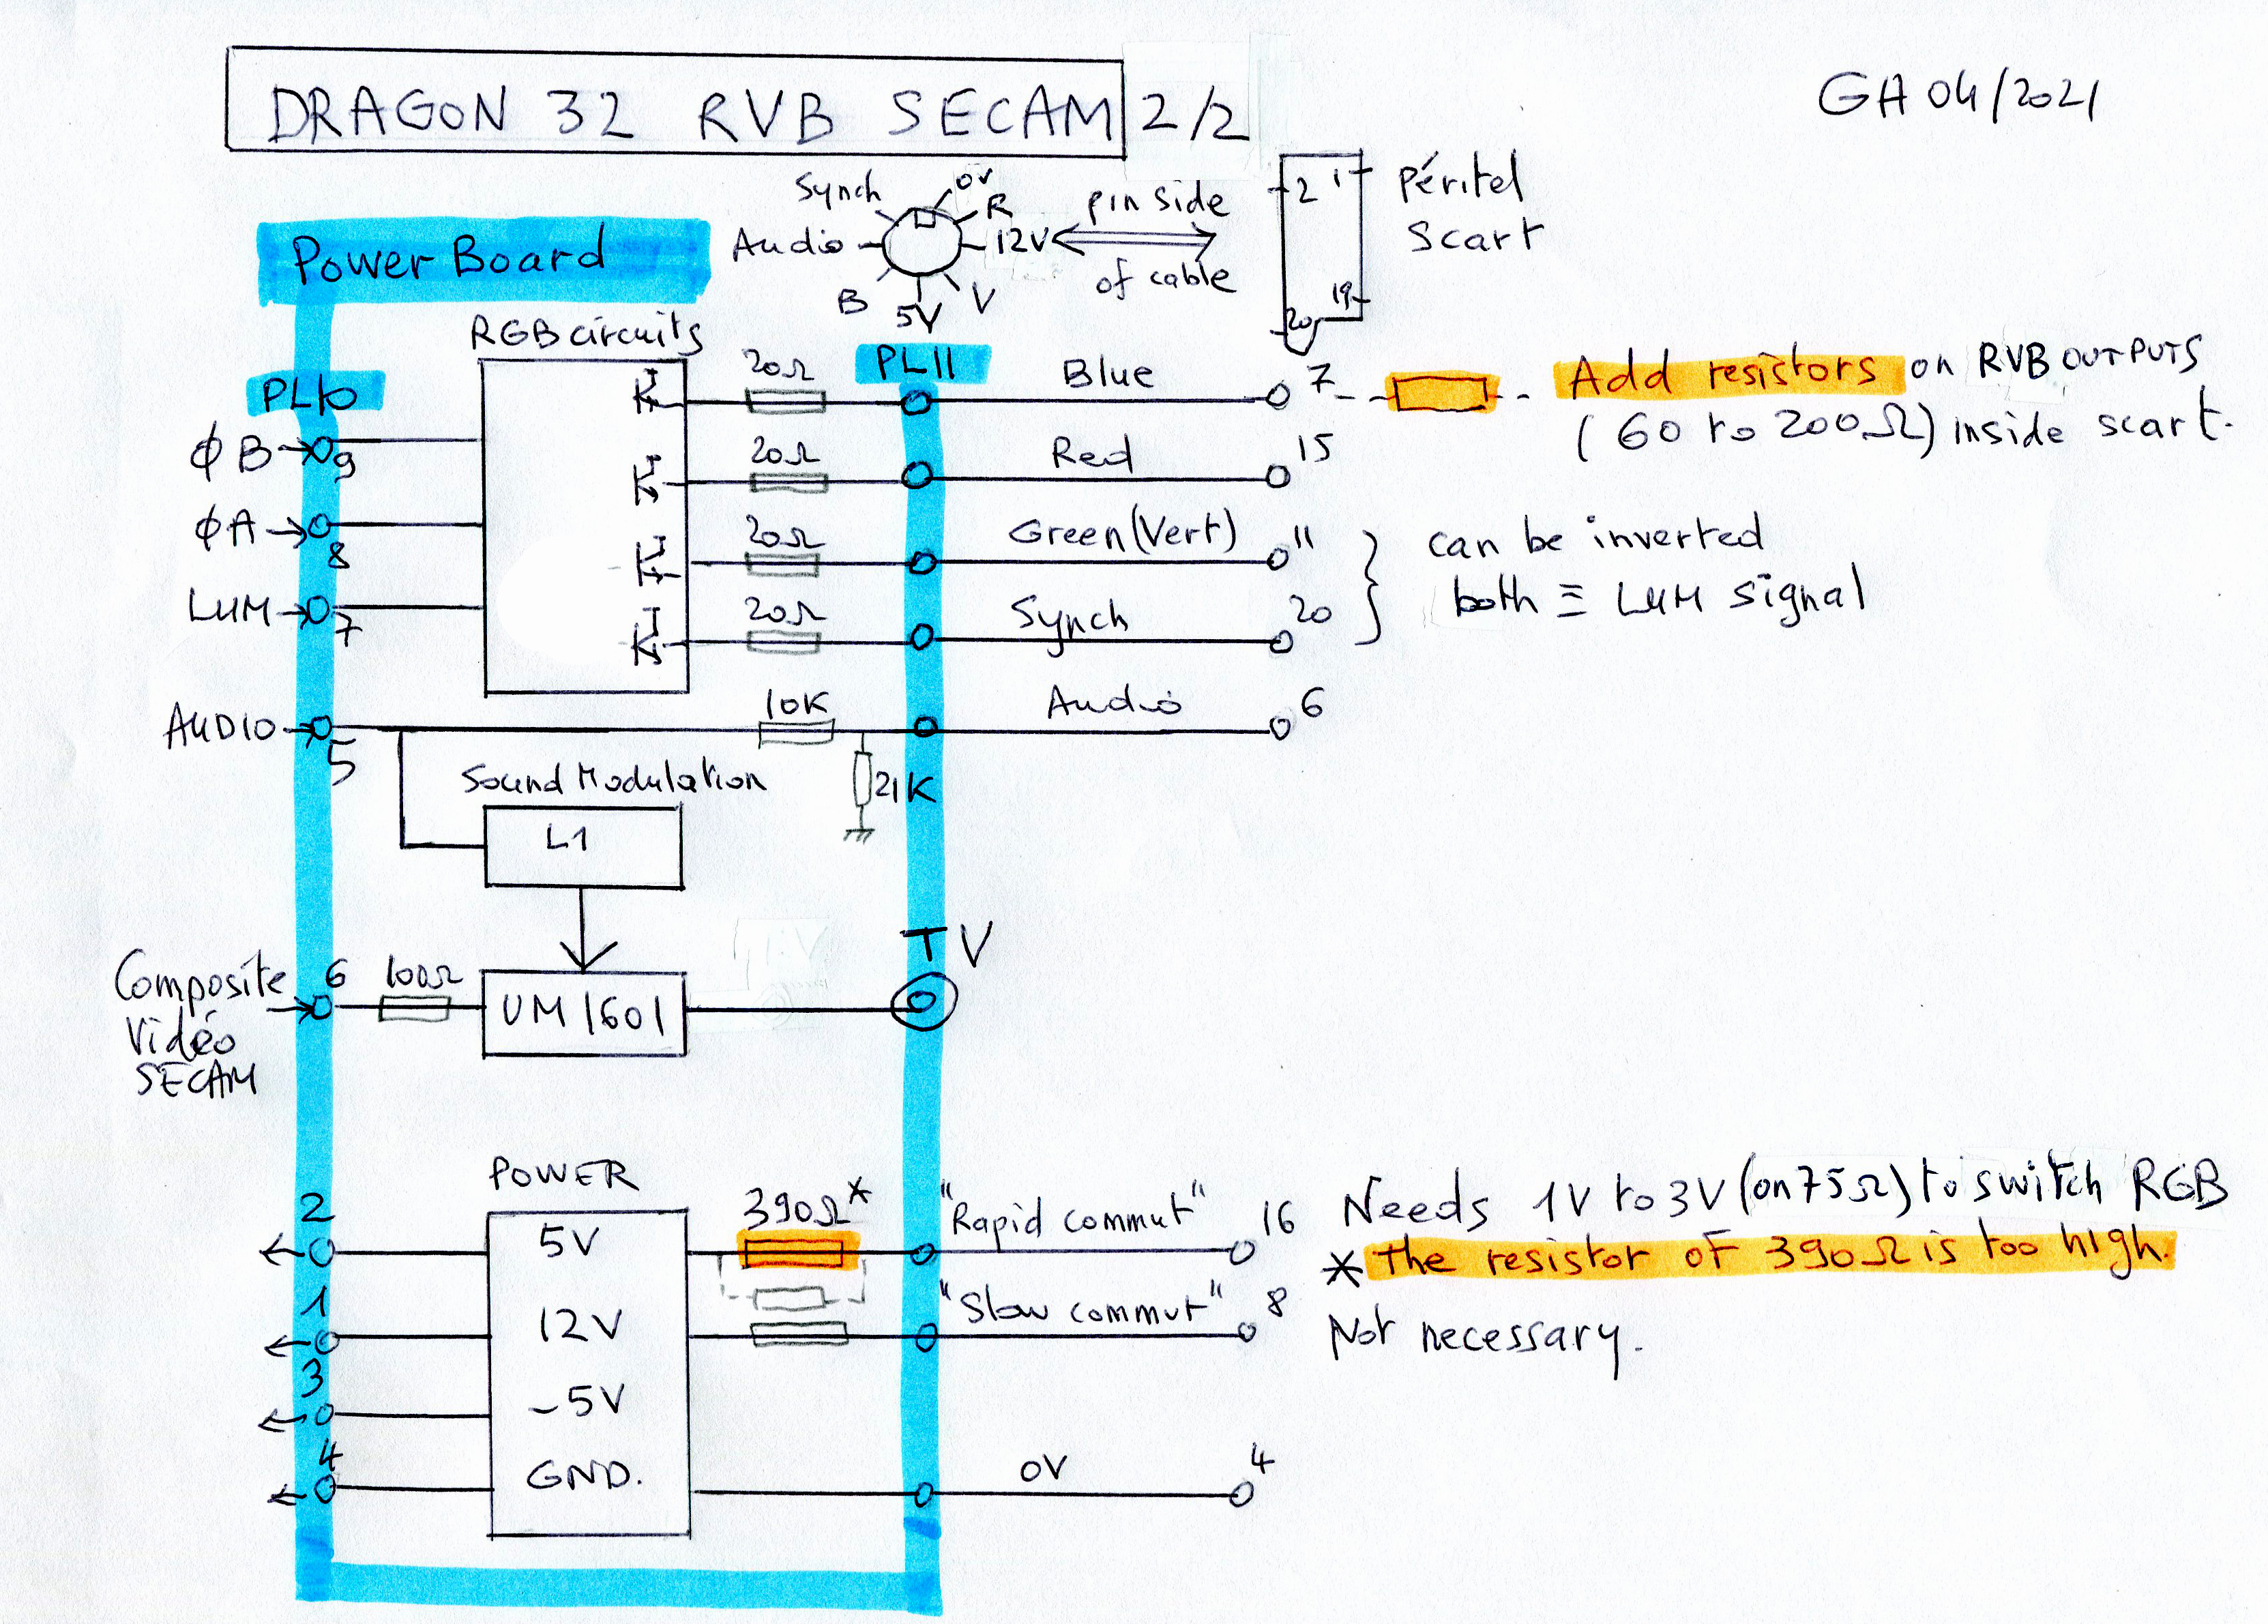 DRAGON 32 RVB SECAM 2/2
GH 04/2021
Synch
0V
R
Audio
12V
B
5V
V
pin side
of cable
2 1
19
20
Péritel
scart
Power Board
RGB circuits
PL10
PL11
ϕB
9
20Ω
Blue
7
Add resistors on RVB OUTPUTS
(60 to 200Ω) inside scart.
20Ω
Red
15
ϕA
8
20Ω
Green (Vert)
11
can be inverted
both ≡ LUM signal
LUM
7
20Ω
Synch
20
AUDIO
5
10K
Audio
6
21K
Sound Modulation
L1
TV
Composite
Vidéo
SECAM
6
100Ω
UM 1601
POWER
2
5V
390Ω*
"Rapid commut"
16
Needs 1V to 3V (on 75Ω) to switch RGB
* The resistor of 390Ω is too high.
1
12V
"Slow commut"
8
Not necessary.
3
-5V
4
GND.
0V
4